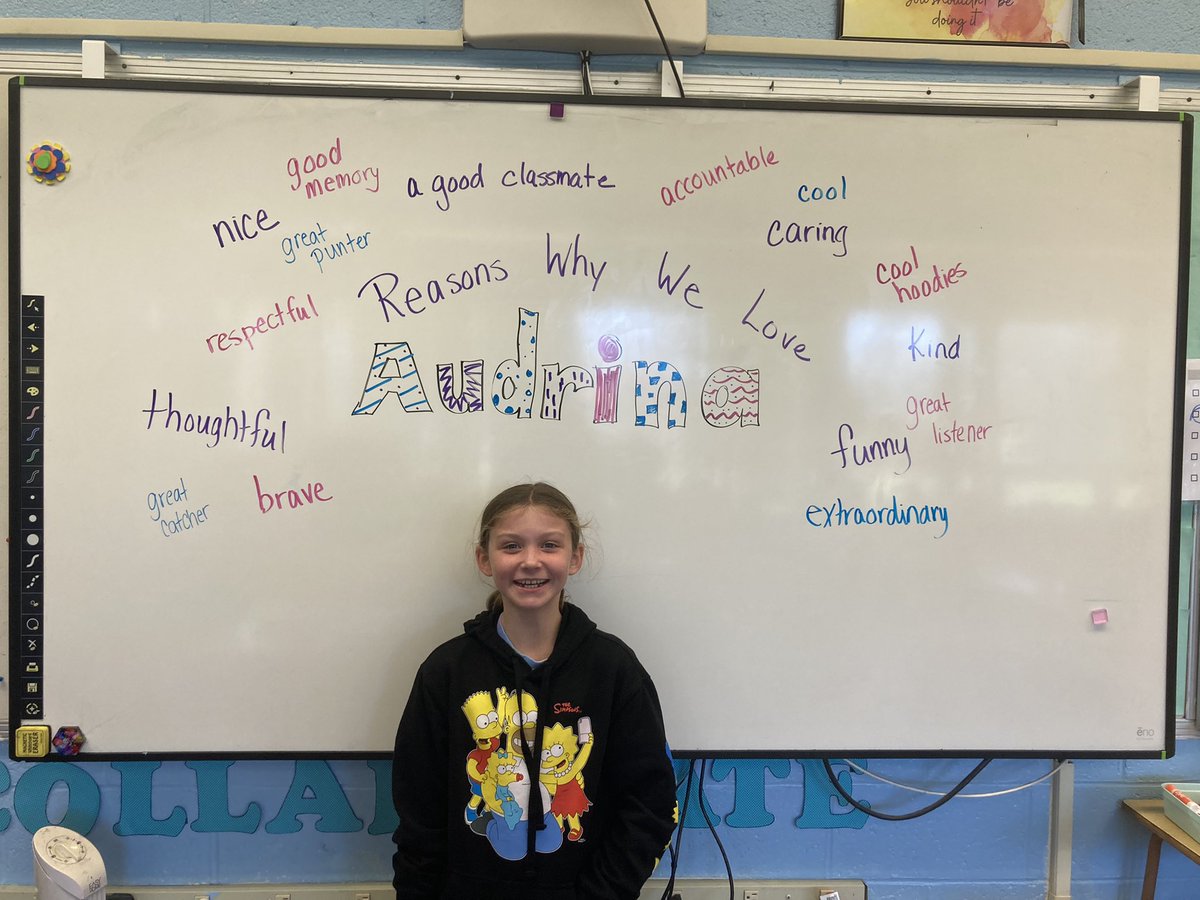 you shouldn't be
doing it
good
memory
a good classmate
accountable
cool
nice
great
punter
caring
Reasons Why We Love
cool
hoodies
respectful
Audrina
Kind
thoughtful
great
listener
funny
great
catcher
brave
extraordinary
THE
SIMPSONS
ERASER
ēno
COLLABORATE